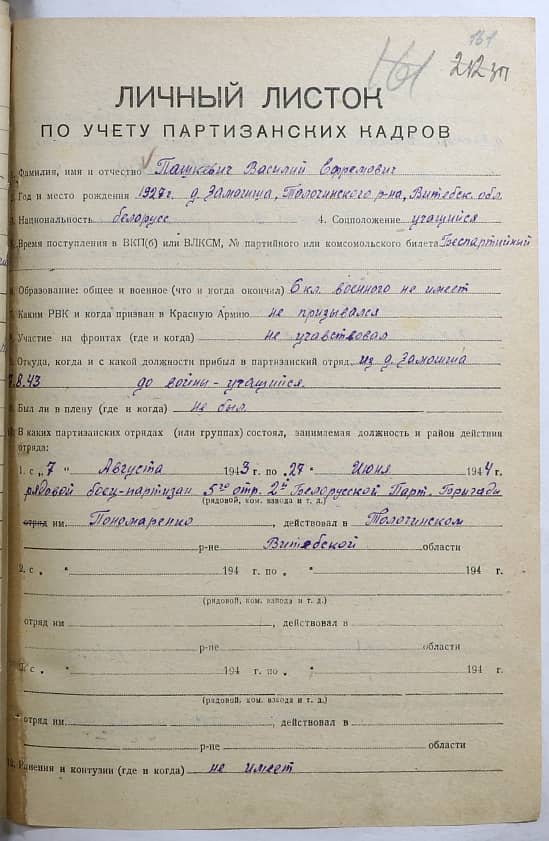 161
161
212
ЛИЧНЫЙ ЛИСТОК
ПО УЧЕТУ ПАРТИЗАНСКИХ КАДРОВ
Фамилия, имя и отчество Пашкевич Василий Ефремович
Год и место рождения 1927г. д. Замошша, Толочинского р-на, Витебск. обл.
Национальность белорусс 4. Соцположение учащийся
Время поступления в ВКП(б) или ВЛКСМ, № партийного или комсомольского билета Беспартийный
Образование: общее и военное (что и когда окончил) 6 кл. военного не имеет
Каким РВК и когда призван в Красную Армию не призывался
Участие на фронтах (где и когда) не учавствовал
Откуда, когда и с какой должности прибыл в партизанский отряд из д. Замошша
7.8.43 до войны - учащийся.
Был ли в плену (где и когда) не был
В каких партизанских отрядах (или группах) состоял, занимаемая должность и район действия
отряда:
1. с „7 " Августа 1943 г. по „27 " Июня 1944 г.
рядовой боец-партизан 5го отр. 2й Белорусской Парт. Бригады
(рядовой, ком. взвода и т. д.)
отряд им. Пономаренко, действовал в Толочинском
р-не Витебской области
2. с „ " 194 г. по „ " 194 г.
(рядовой, ком. взвода и т. д.)
отряд им , действовал в
р-не области
с „ " 194 г. по „ " 194 г.
(рядовой, ком. взвода и т. д.)
отряд им. , действовал в
р-не области
Ранения и контузии (где и когда) не имеет